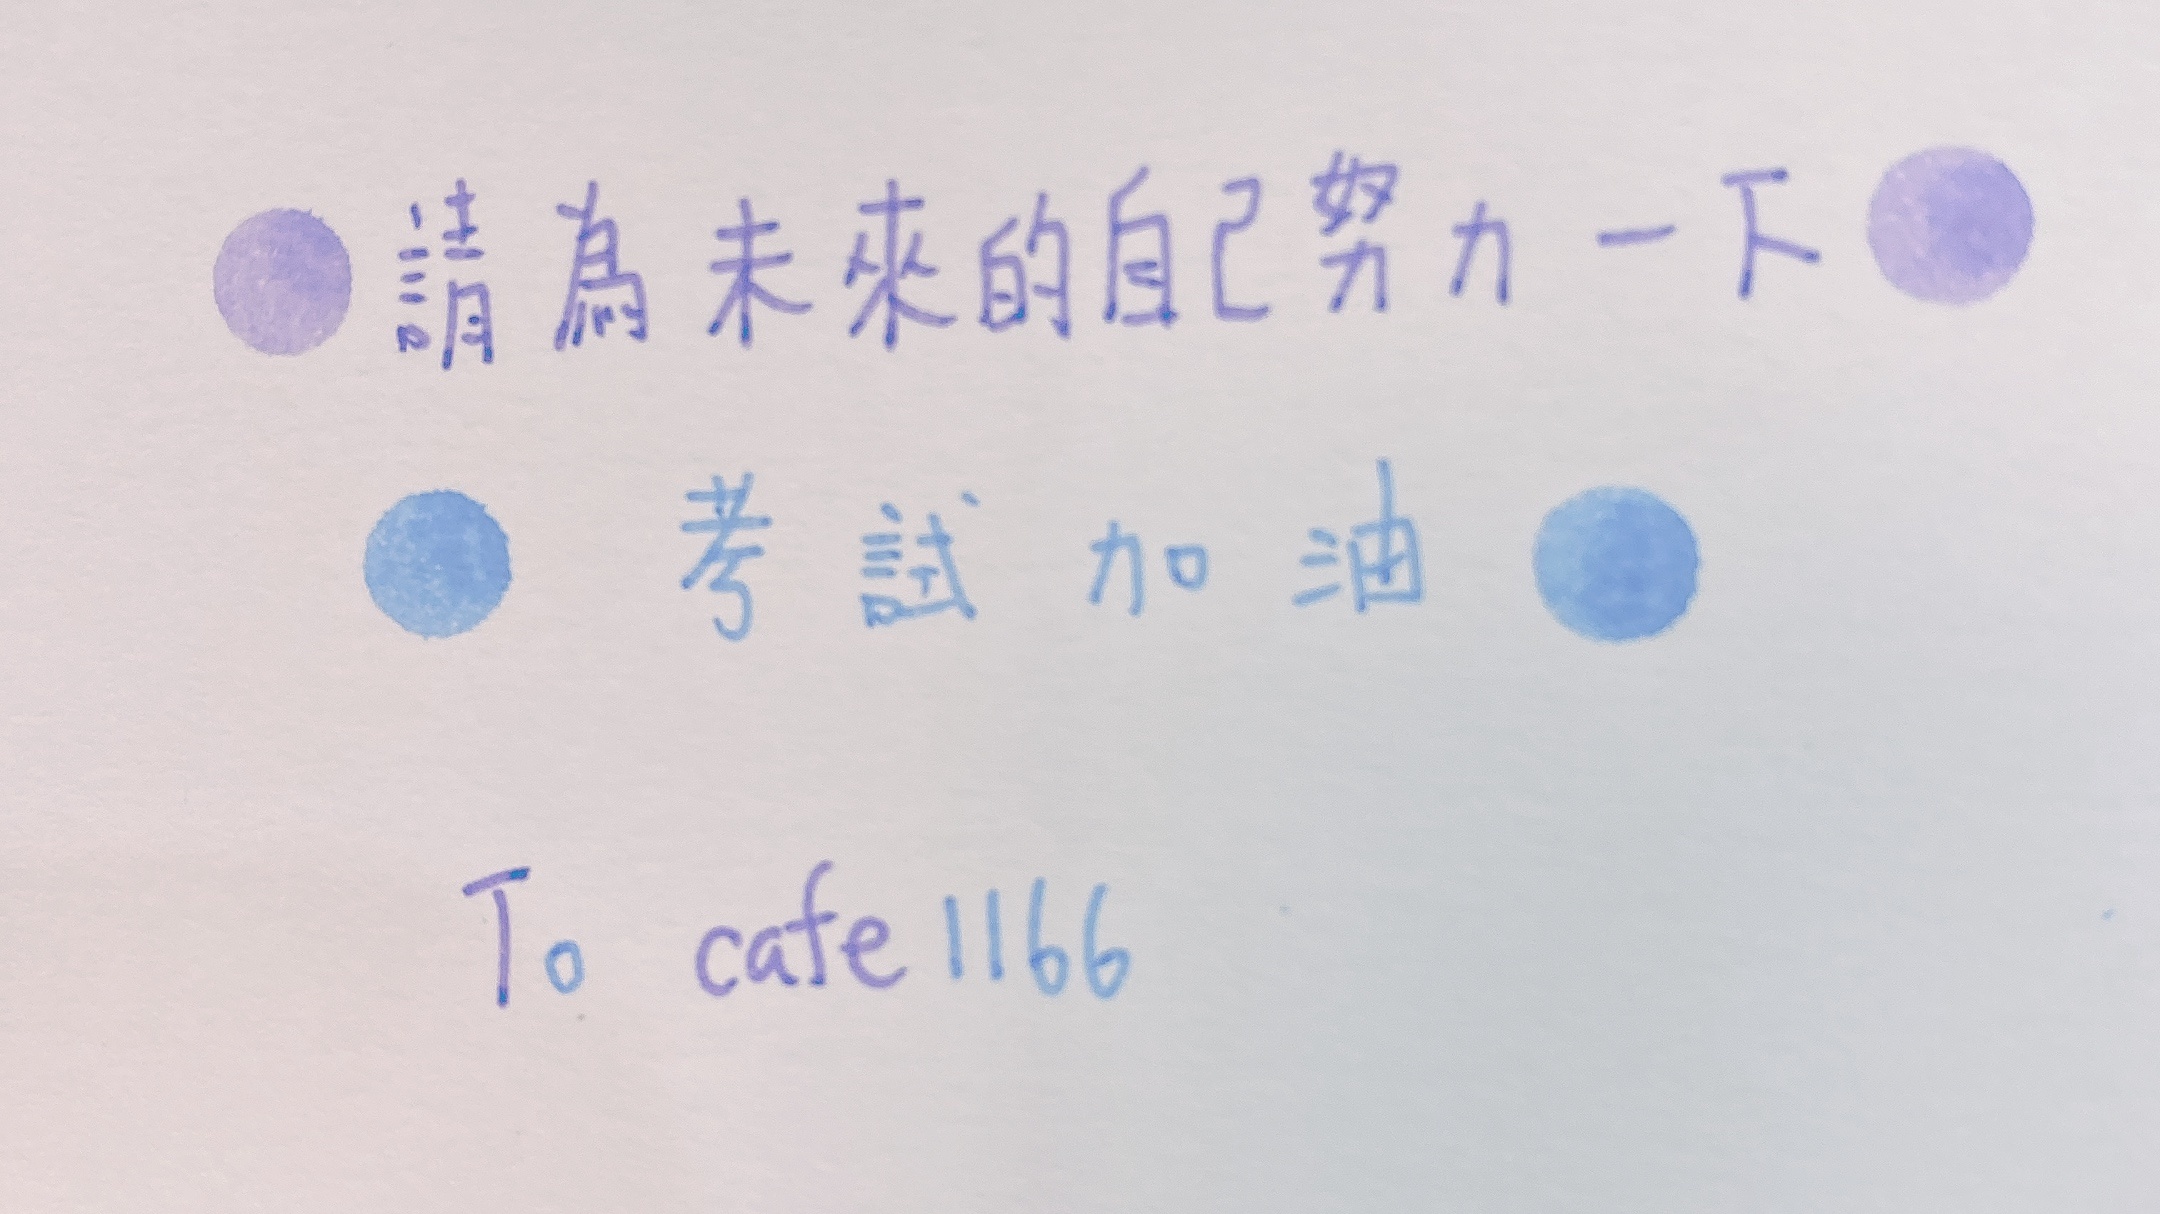 請為未來的自己努力一下
考試加油
To cafe1166